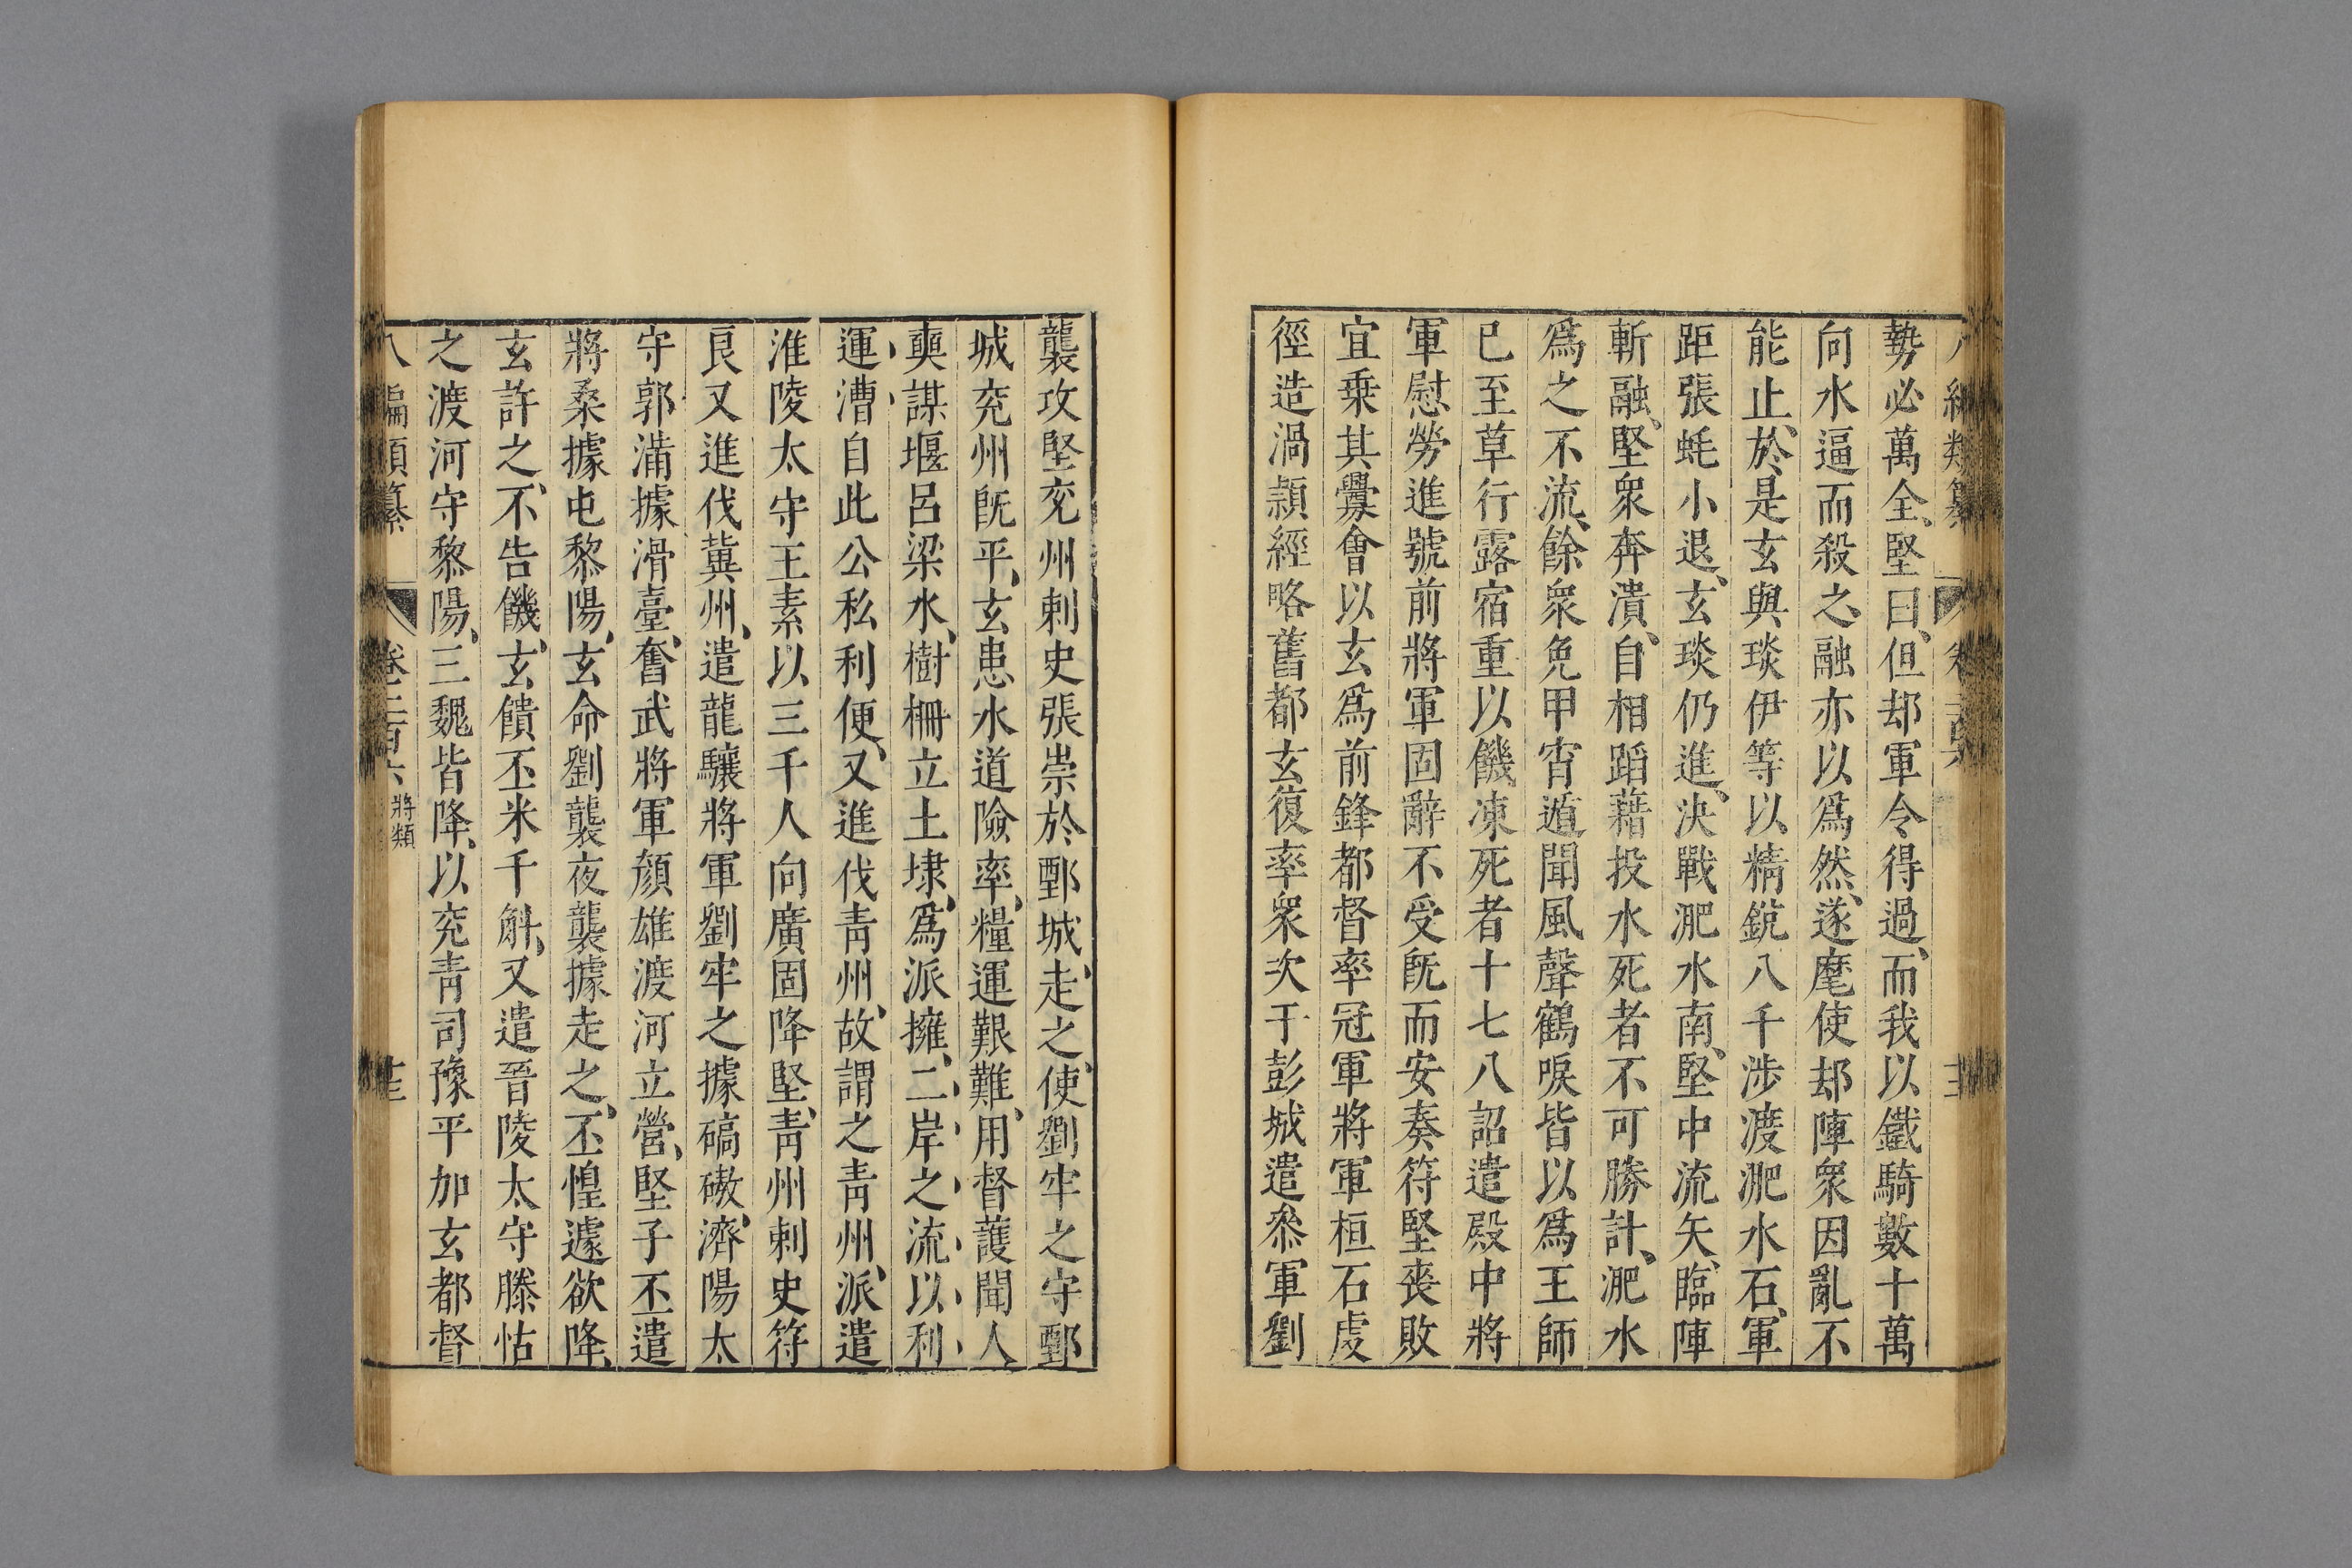 勢必萬全堅曰但却軍令得過而我以鐵騎數十萬
向水逼而殺之融亦以爲然遂麾使却陣衆因亂不
能止於是玄與琰伊等以精銳八千涉渡淝水石軍
距張蚝小退玄琰仍進決戰淝水南堅中流矢臨陣
斬融堅衆奔潰自相蹈藉投水死者不可勝計淝水
爲之不流餘衆免甲宵遁聞風聲鶴唳皆以爲王師
已至草行露宿重以饑凍死者十七八詔遣殿中將
軍慰勞進號前將軍固辭不受旣而安奏符堅喪敗
宜乗其釁會以玄爲前鋒都督率冠軍將軍桓石虔
徑造渦潁經略舊都玄復率衆次于彭城遣叅軍劉
襲攻堅兖州刺史張崇於鄄城走之使劉牢之守鄄
城兖州旣平玄患水道險率糧運艱難用督護聞人
奭謀堰呂梁水樹柵立土埭爲派擁二岸之流以利
運漕自此公私利便又進伐青州故謂之青州派遣
淮陵太守王素以三千人向廣固降堅青州刺史符
良又進伐冀州遣龍驤將軍劉牢之據碻磝濟陽太
守郭滿據滑臺奮武將軍顏雄渡河立營堅子丕遣
將桑據屯黎陽玄命劉襲夜襲據走之丕惶遽欲降
玄許之不告饑玄饋丕米千斛又遣晉陵太守滕恬
之渡河守黎陽三魏皆降以兖青司豫平加玄都督
八編類纂 卷二百六 將類 十三